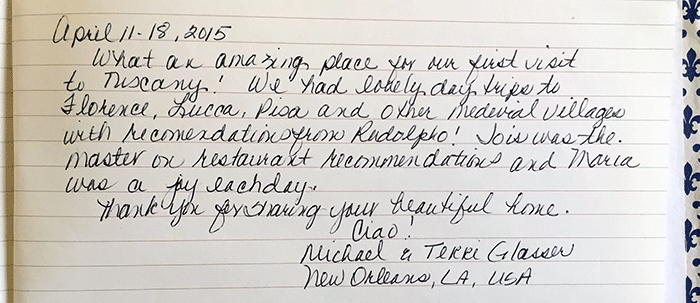 April 11-18, 2015
What an amazing place for our first visit
to Tuscany! We had lovely day trips to
Florence, Lucca, Pisa and other medieval villages
with recomendations from Rudolpho! Jois was the
master on restaurant recommendations and Maria
was a joy each day.
Thank you for sharing your beautiful home.
Ciao!
Michael & Terri Glasser
New Orleans, LA, USA